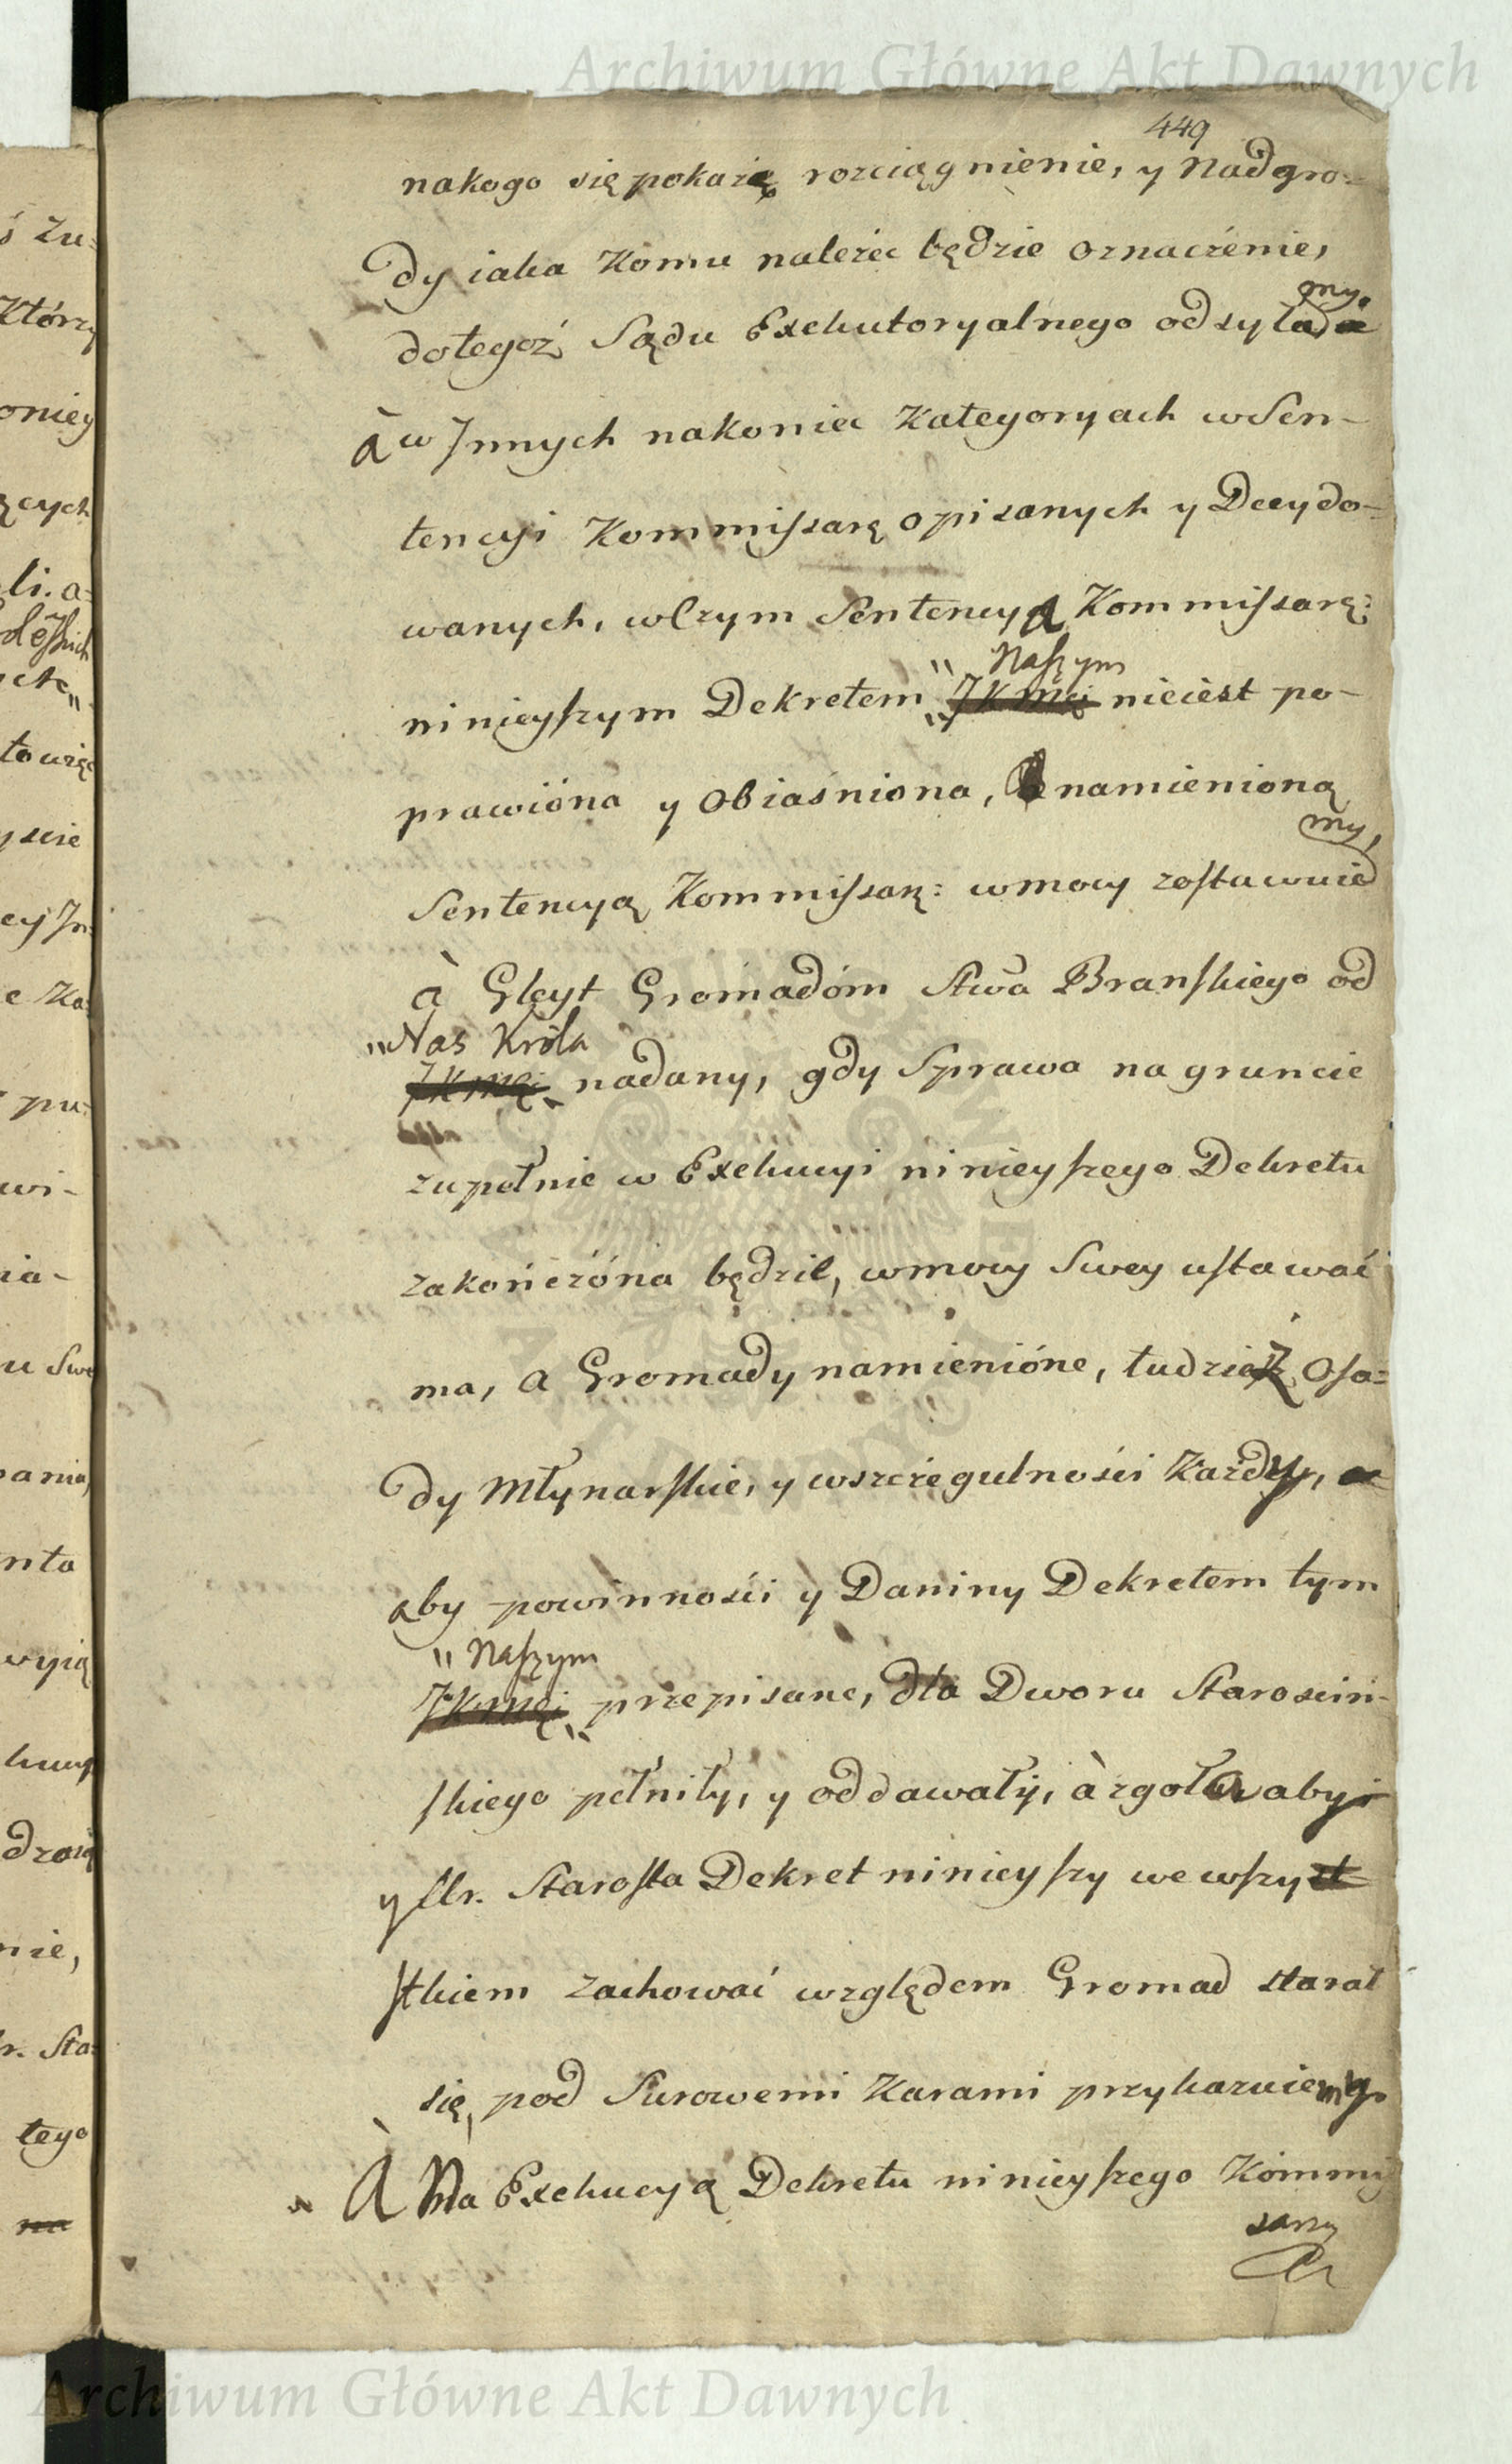 Archiwum Główne Akt Dawnych
449
nakogo się pokaże rozciągnienie, y Nadgro=
dy iaka Komu należec będzie oznaczenie,
my.
dotegoż Sądu Exekutoryalnego odsyła
à w Innych nakoniec Kategoryach w Sen-
tencyi Kommissarę opisanych y Decydo-
wanych, wCzym Sentencya Kommissarę:
Naszym
ninieyszym Dekretem JKMci nieiest po-
prawióna y Obiasniona, namienioną
my,
Sentencyą Kommissarę: wmocy zostawuie
à Gleyt Gromadóm Stwa Branskiego od
"Nas Króla
JKMci nadany, gdy Sprawa na gruncie
zupełnie w Exekucyi ninieyszego Dekretu
zakończóna będzie, wmocy Swey ustawać
ma, a Gromady namienióne, tudzież Osa=
dy Młynarskie, y wszczegulności Każdy, a
aby powinności y Daniny Dekretem tym
" Naszym
JKMci przepisane, dla Dworu Starościń-
skiego pełniły, y oddawały, à zgoła aby
y Ur. Starosta Dekret ninieyszy we wszyst
stkiem zachować względem Gromad starał
się, pod Surowemi Karami przykazuiemy.
À Na Exekucyą Dekretu ninieyszego Kommis
sarzy
ś Zu=
Którzy
oniey
ących
li. a=
ych
towię
yscie
ey Jn
e Ka=
pu=
wi-
ia-
u Swe
ania
nta
wyią
nie,
r. Sta=
tego
na
Archiwum Główne Akt Dawnych